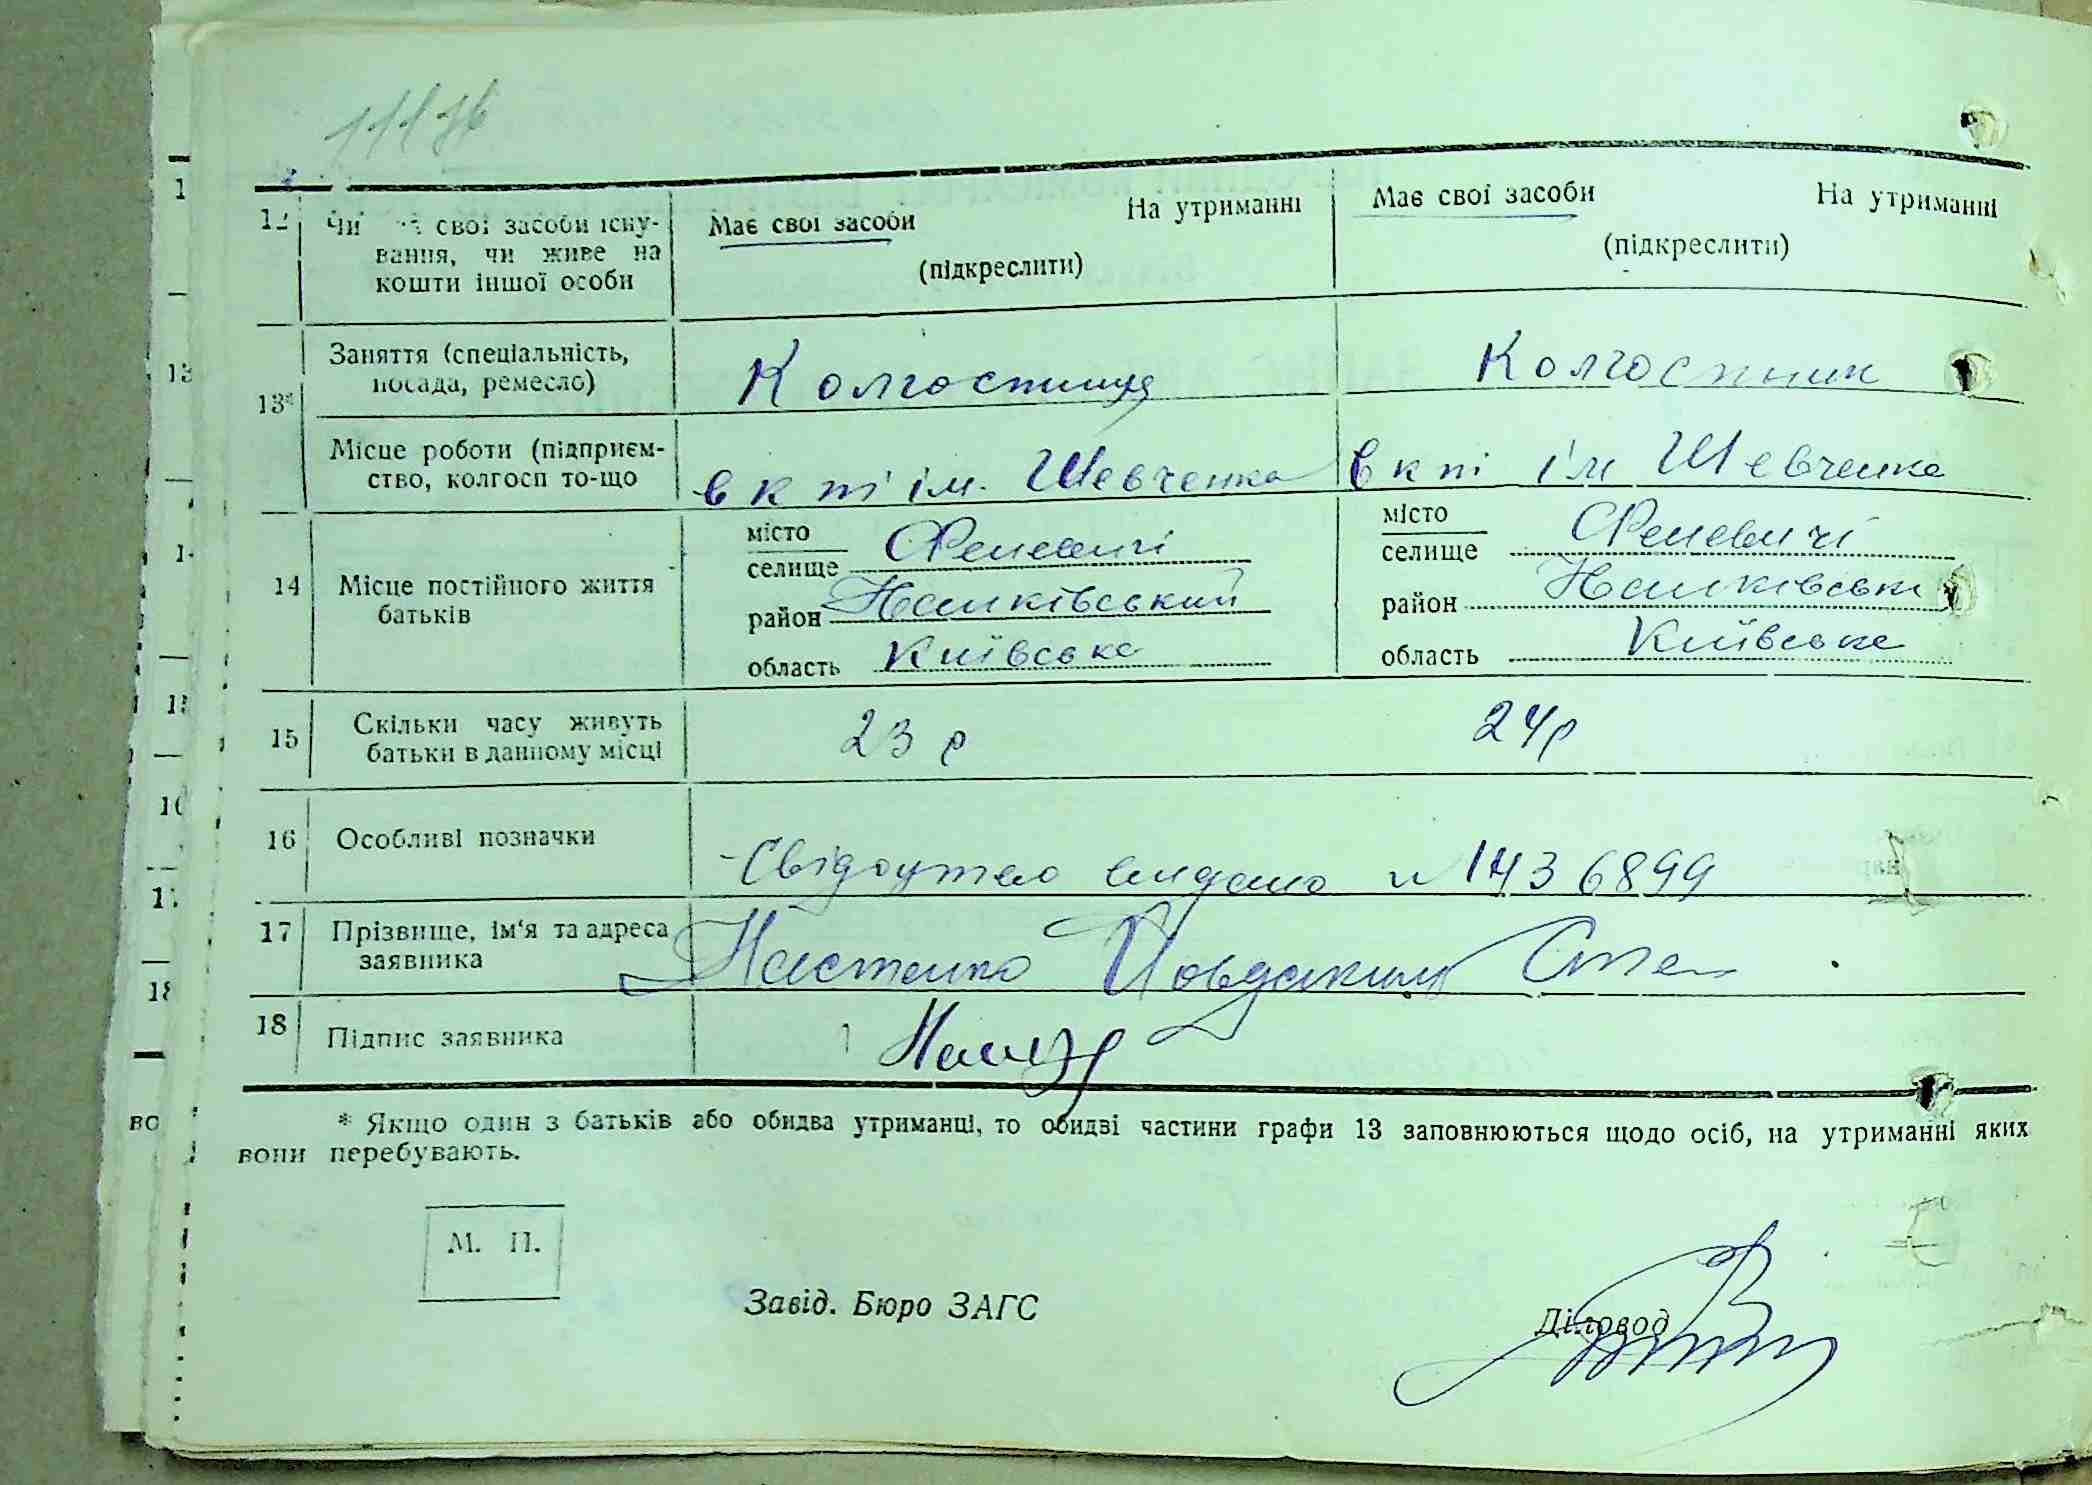 12 Чи має свої засоби існу-
вання, чи живе на
кошти іншої особи
Має свої засоби На утриманні
(підкреслити)
Має свої засоби На утриманні
(підкреслити)
13*
Заняття (спеціальність,
посада, ремесло)
Колгоспниця
Колгоспник
Місце роботи (підприєм-
ство, колгосп то-що
в к пі ім. Шевченка
в к пі ім Шевченка
14 Місце постійного життя
батьків
місто
селище Феневичі
район Іванківський
область Київська
місто
селище Феневичі
район Іванківськ
область Київська
15 Скільки часу живуть
батьки в данному місці
23 р
24 р
16 Особливі позначки
Свідоцтво видано № 1436899
17 Прізвище, ім'я та адреса
заявника
18 Підпис заявника
* Якщо один з батьків або обидва утриманці, то обидві частини графи 13 заповнюються щодо осіб, на утриманні яких
вони перебувають.
М. П.
Завід. Бюро ЗАГС
Діловод